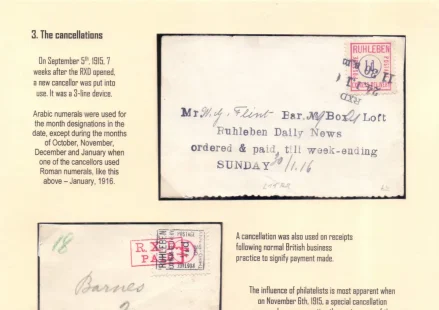 3. The cancellations
On September 5th, 1915, 7
weeks after the RXD opened,
a new cancellor was put into
use. It was a 3-line device.
Arabic numerals were used for
the month designations in the
date, except during the months
of October, November,
December and January when
one of the cancellors used
Roman numerals, like this
above – January, 1916.
RUHLEBEN
Mr. W. J. Flint Bar. Box 21 Loft
Ruhleben Daily News
ordered & paid till week-ending
SUNDAY 30/1.16
18
R.X.D.
PAID
RUHLEBEN
Barnes
2
A cancellation was also used on receipts
following normal British business
practice to signify payment made.
The influence of philatelists is most apparent when
on November 6th, 1915, a special cancellation